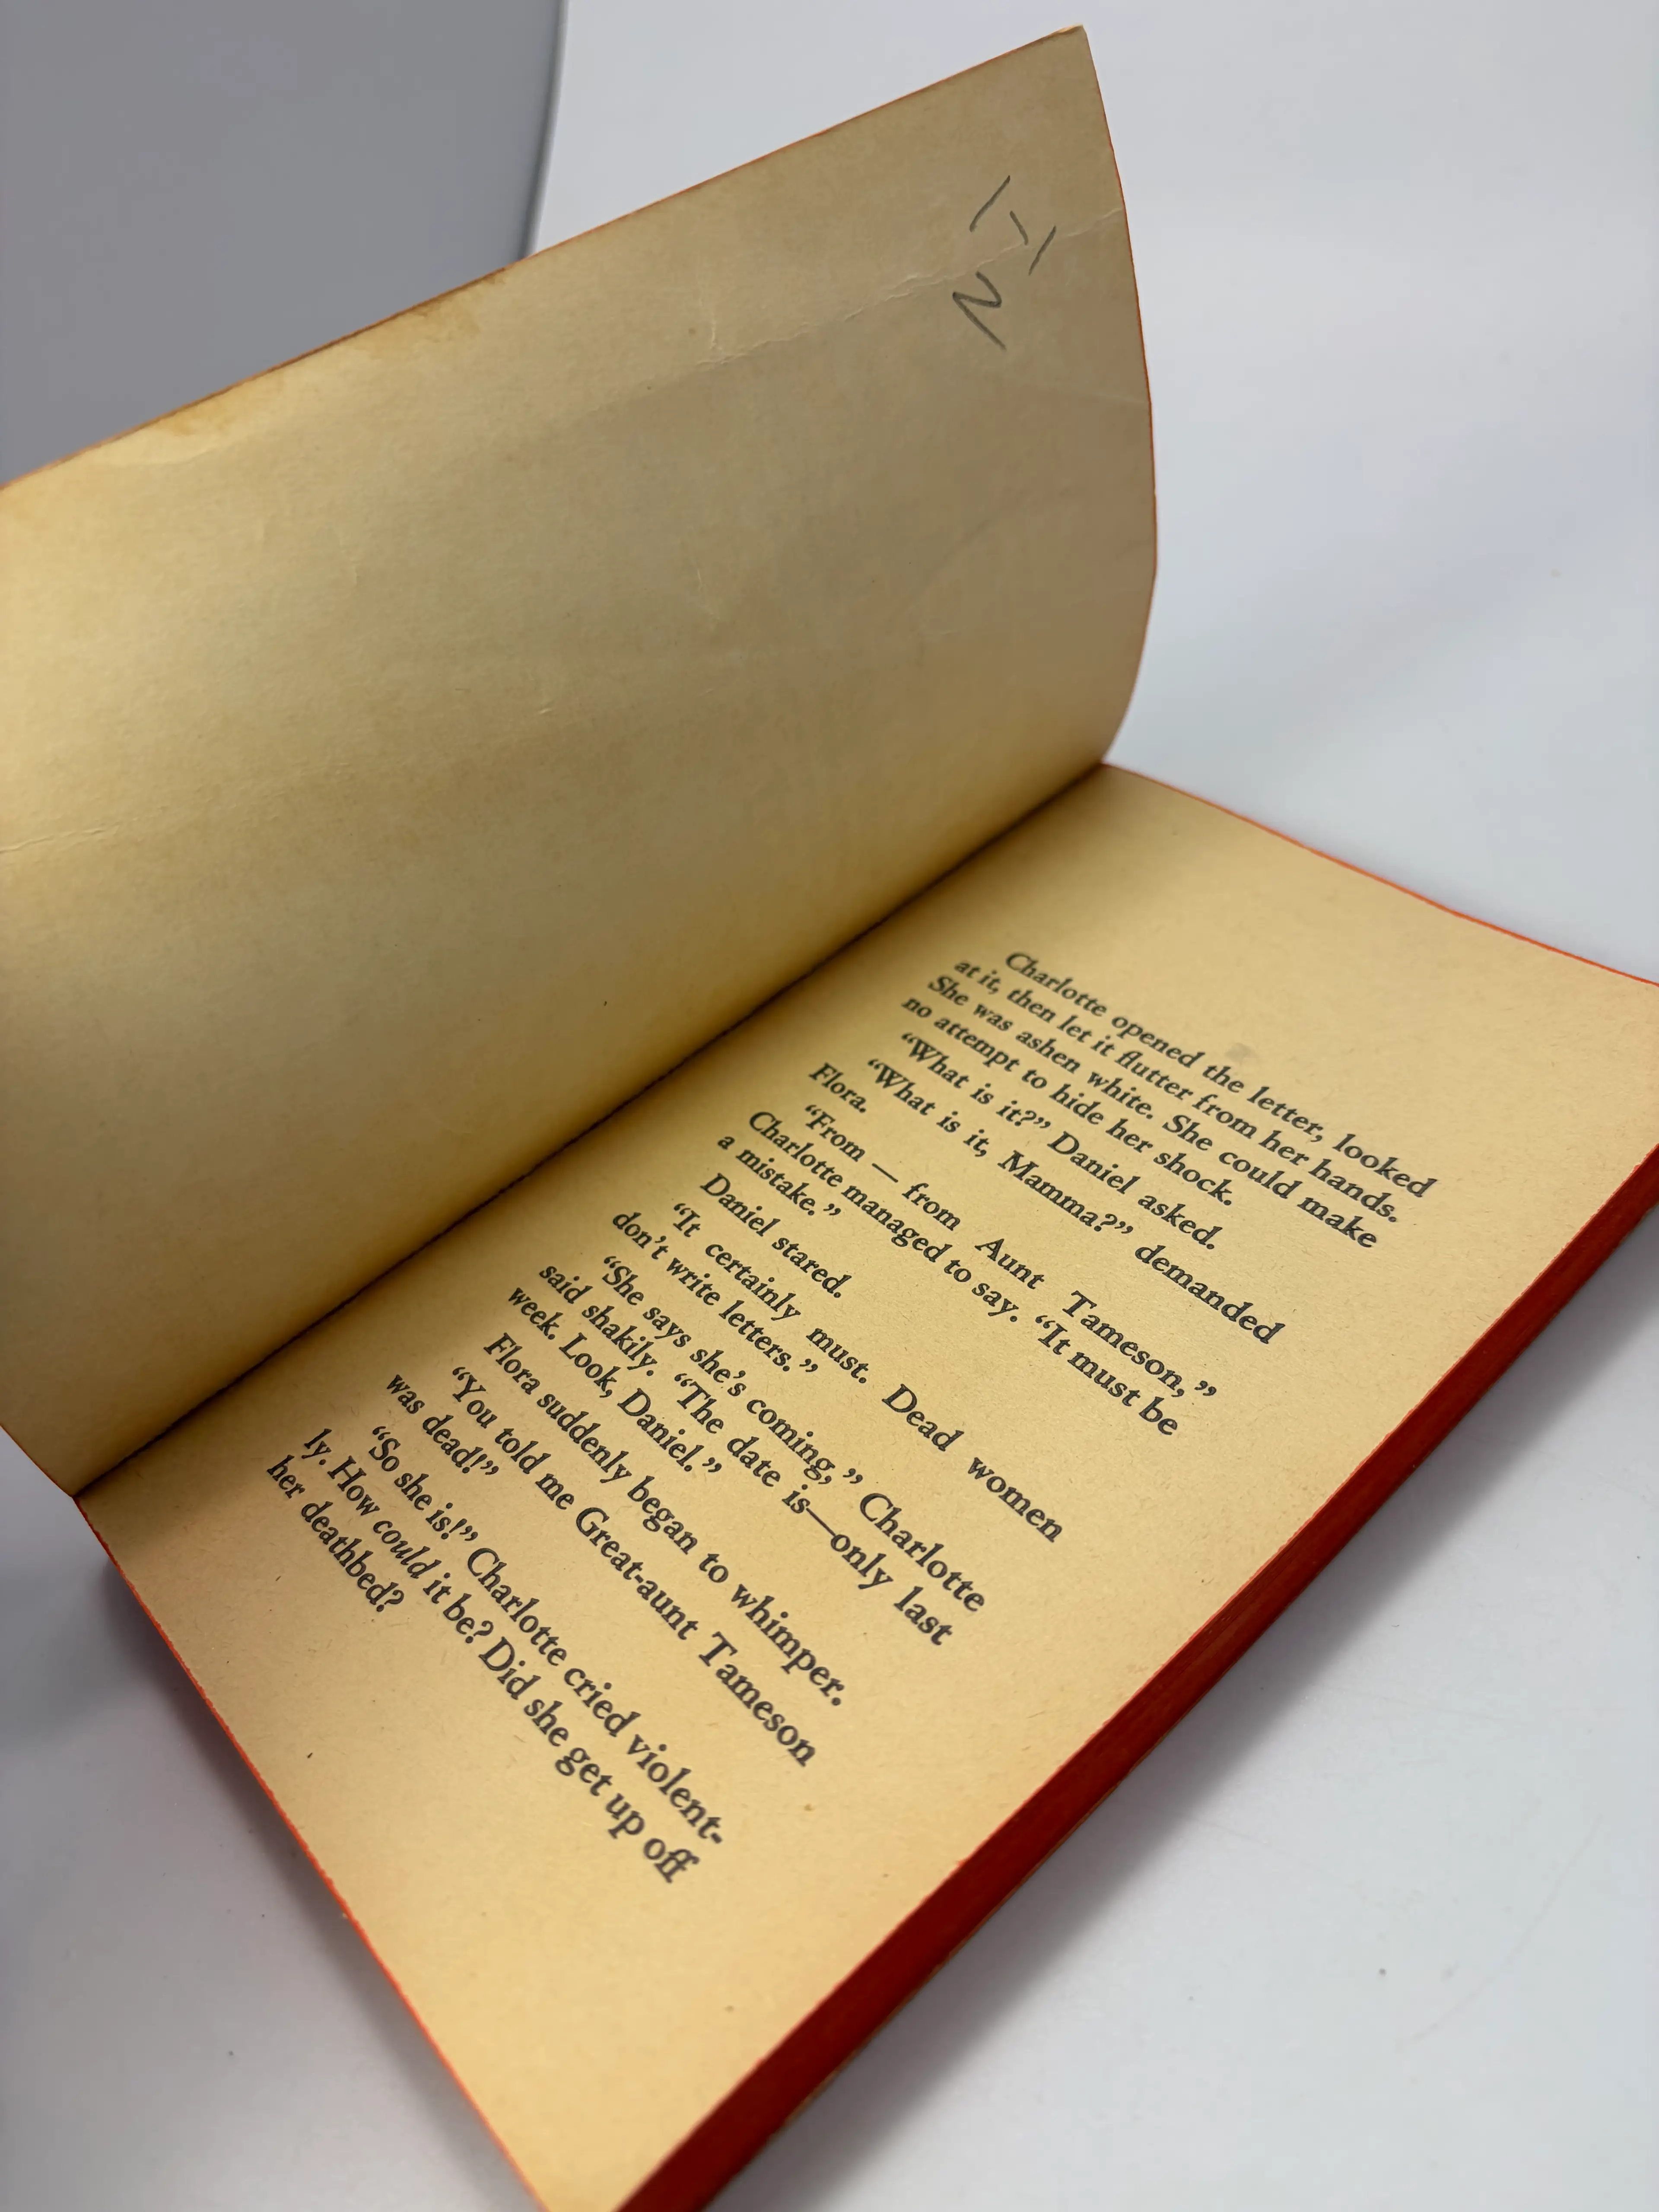 Charlotte opened the letter, looked
at it, then let it flutter from her hands.
She was ashen white. She could make
no attempt to hide her shock.
“What is it?” Daniel asked.
“What is it, Mamma?” demanded
Flora.
“From — from Aunt Tameson,”
Charlotte managed to say. “It must be
a mistake.”
Daniel stared.
“It certainly must. Dead women
don’t write letters.”
“She says she’s coming,” Charlotte
said shakily. “The date is—only last
week. Look, Daniel.”
Flora suddenly began to whimper.
“You told me Great-aunt Tameson
was dead!”
“So she is!” Charlotte cried violent-
ly. How could it be? Did she get up off
her deathbed?